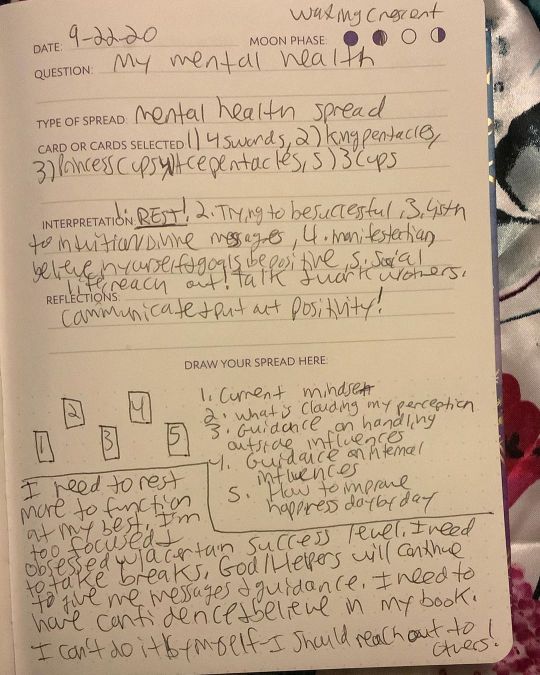 Waxing Crescent
DATE: 9-22-20 MOON PHASE:
QUESTION: My mental health
TYPE OF SPREAD: Mental health spread
CARD OR CARDS SELECTED 1) 4 swords, 2) king pentacles,
3) Princess Cups, 4) Ace pentacles, 5) 3 Cups
INTERPRETATION: 1. REST! 2. Trying to be successful, 3. Listn
to intuition/Divine messages, 4. manifestation
believe in yourself + goals be positive, 5. Social
life, reach out! talk + work w/others.
REFLECTIONS:
Communicate + put out positivity!
DRAW YOUR SPREAD HERE:
1. Current mindset
2. what is clouding my perception
3. Guidance on handling
outside influences
4. Guidance on internal
influences
5. How to improve
happiess day by day
1 2 3 4 5
I need to rest
more to function
at my best. I'm
too focused +
obsessed w/a certain success level. I need
to take breaks. God/Helpers will continue
to give me messages + guidance. I need to
have confidence + believe in my book.
I can't do it by myself - I should reach out to
others!